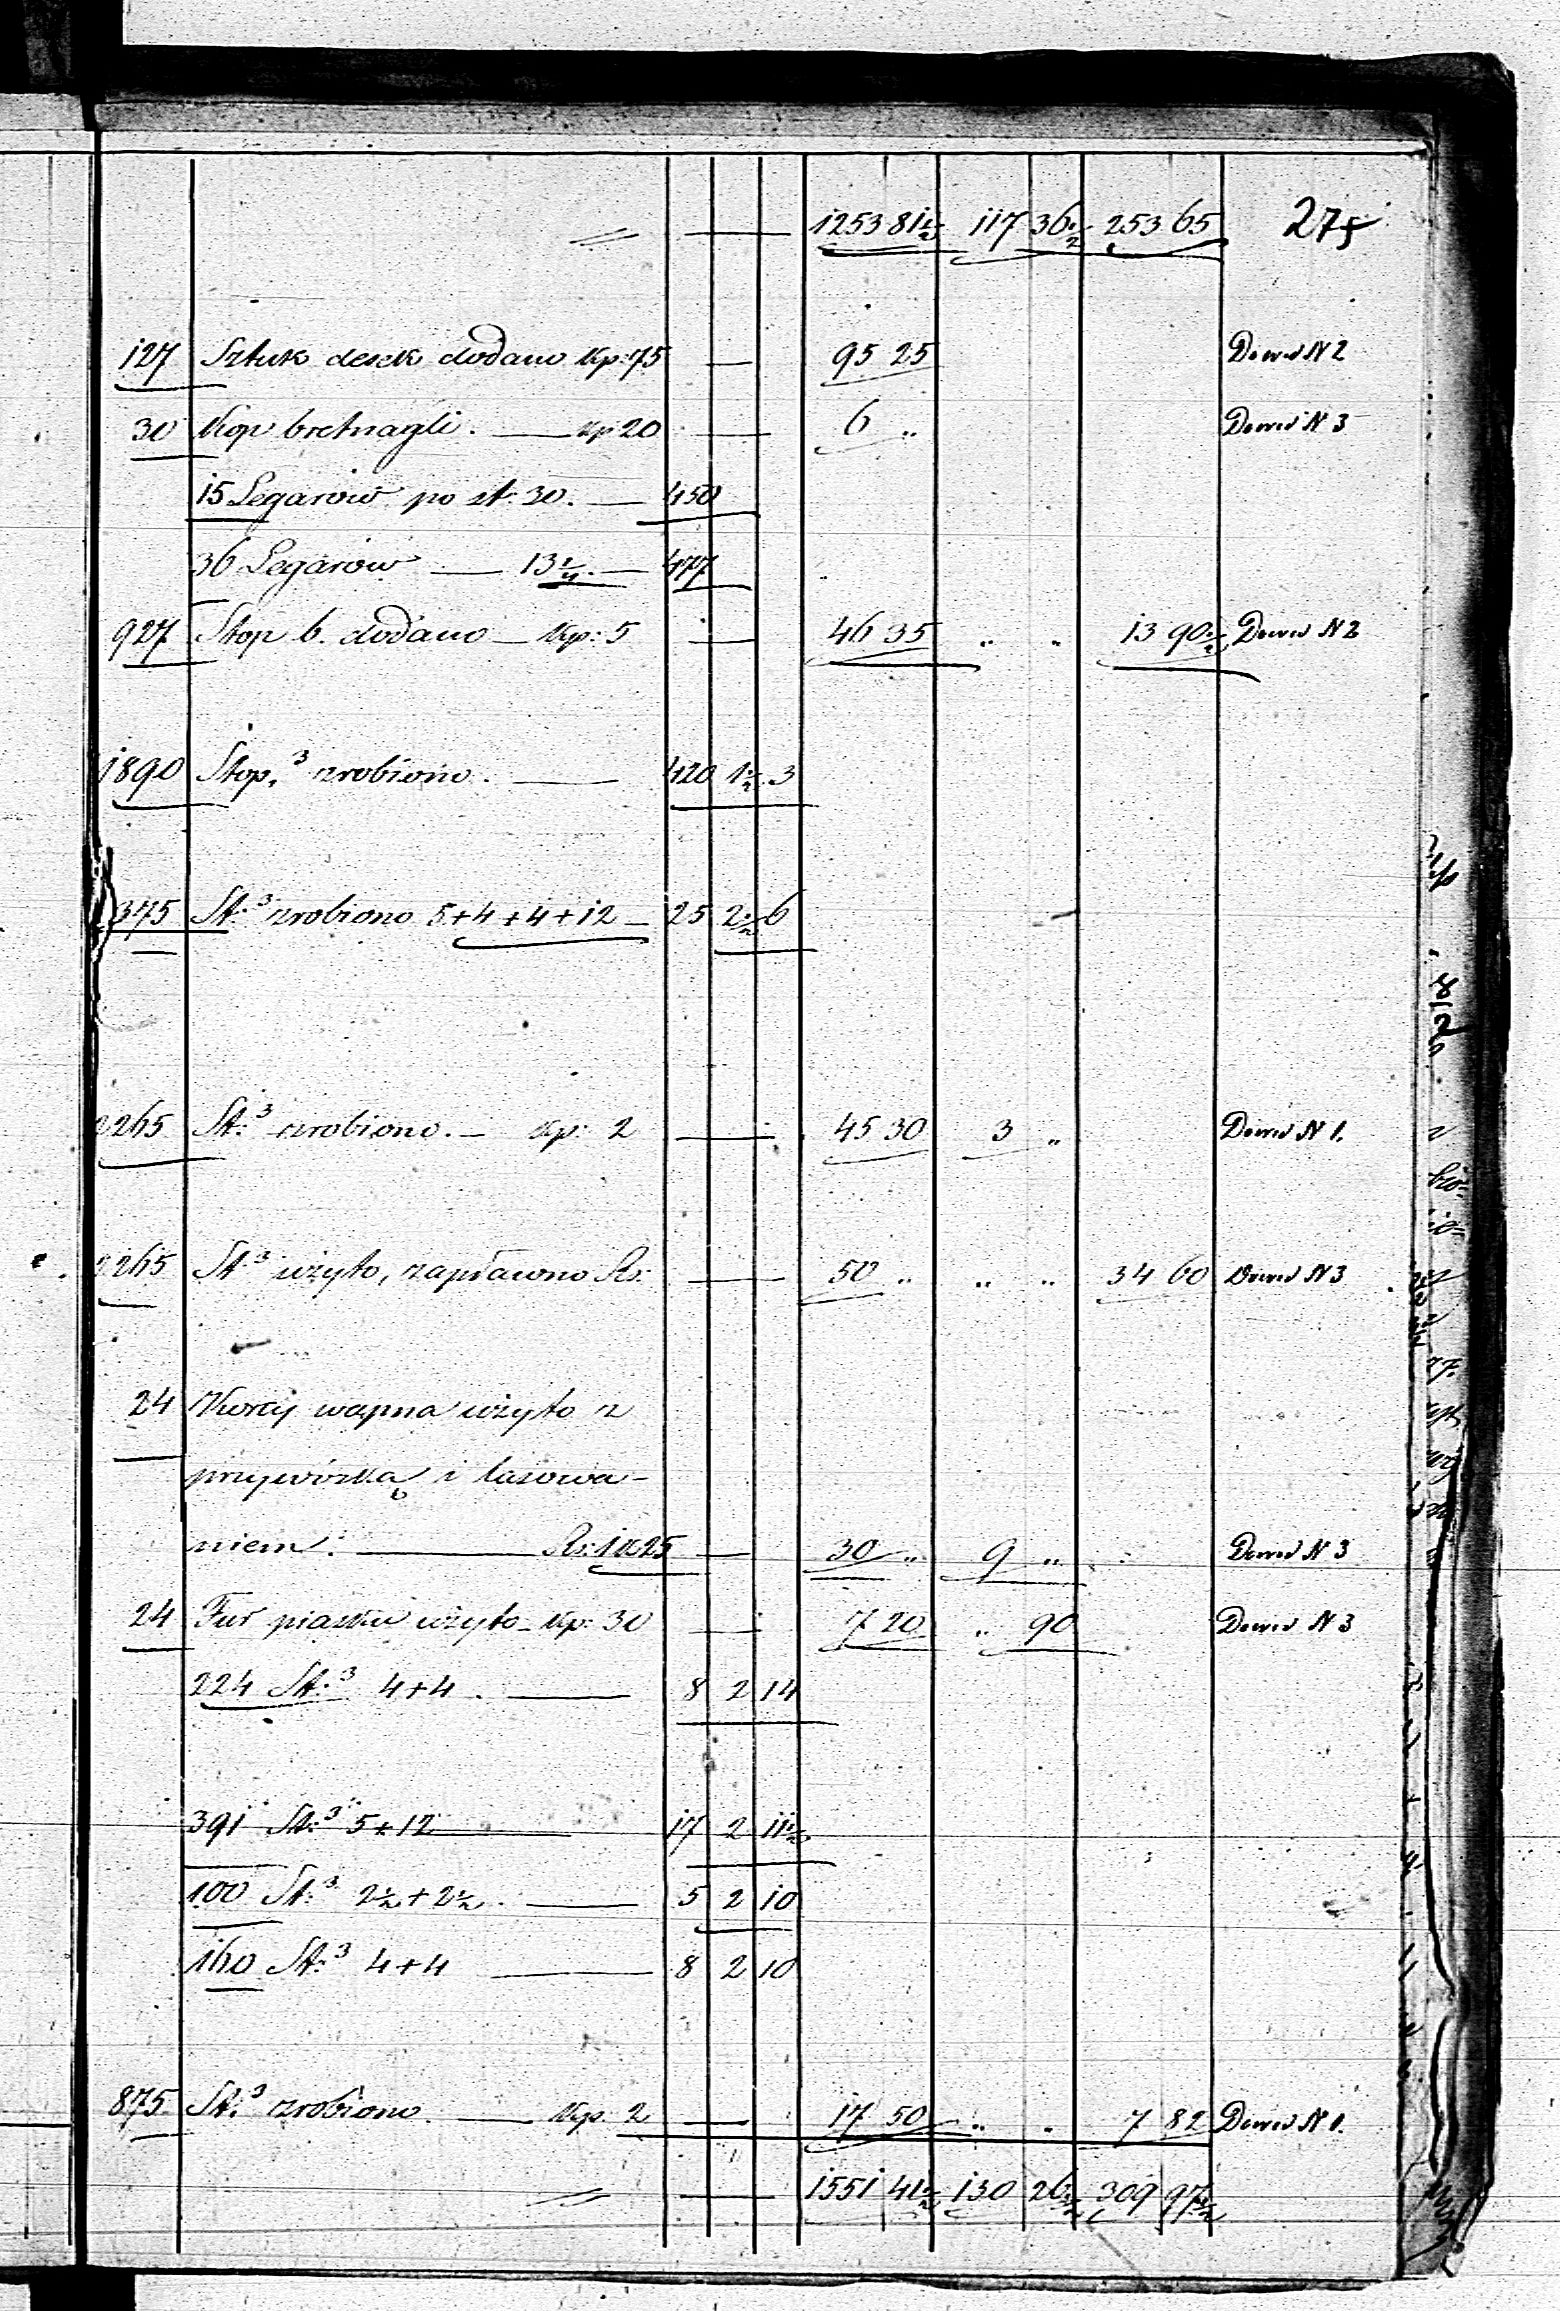 1253 81½ 117 36½ 253 65 275
127 Sztuk desek dodano Kp: 75 — 95 25 Dowód N 2
30 Kop bretnagli. — Kp 20 — 6 „ Dowód N 3
15 Legarów po st. 30. — 450
36 Legarów — 13¼. — 477
927 Stop b. dodano — Kp: 5 — 46 35 „ „ 13 90½ Dowód N 2
1890 Stop.³ zrobiono. — 420 1½ 3
375 St:³ zrobiono 5+4+4+12 — 25 2½ 6
2265 St:³ zrobiono. — Kp: 2 — 45 30 3 „ Dowód N 1.
2265 St³ użyto, zapłacono Rs: — 50 „ „ „ 34 60 Dowód N 3
24 Korcy wapna użyto z
przywózką i lasowa-
niem. — Rs: 1 k 25 — 30 „ 9 „ Dowód N 3
24 Fur piasku użyto — Kp: 30 — 7 20 „ 90 Dowód N 3
224 St:³ 4+4. — 8 2 14
391 St:³ 5+12 — 17 2 11½
100 St:³ 2½+2½. — 5 2 10
160 St:³ 4+4 — 8 2 10
875 St:³ zrobiono. — Kp. 2 — 17 50 „ „ 7 82 Dowód N 1.
— 1551 41½ 130 26½ 309 97½